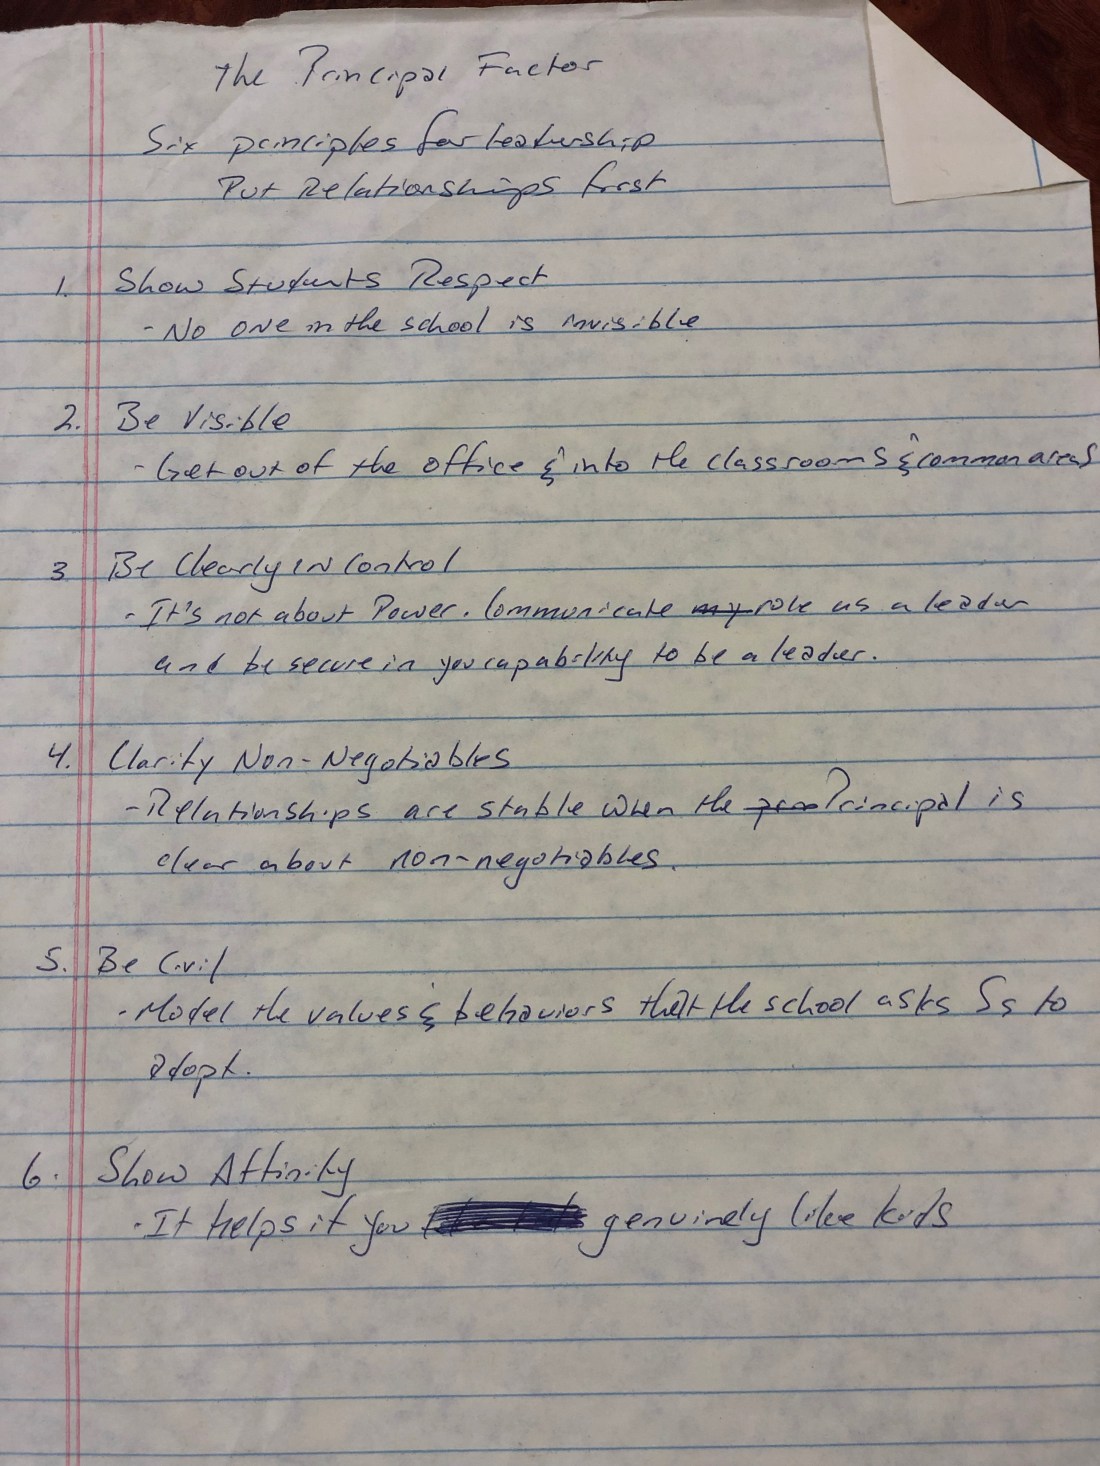 The Principal Factor
Six principles for leadership
Put Relationships first
1. Show Students Respect
- No one in the school is invisible
2. Be Visible
- Get out of the office & into the classrooms & common areas
3 Be Clearly in Control
- It's not about Power. Communicate my role as a leader
and be secure in you capability to be a leader.
4. Clarity Non-Negotiables
- Relationships are stable when the Principal is
clear about non-negotiables.
5. Be Civil
- Model the values & behaviors that the school asks Ss to
adopt.
6. Show Affinity
- It helps if you genuinely like kids